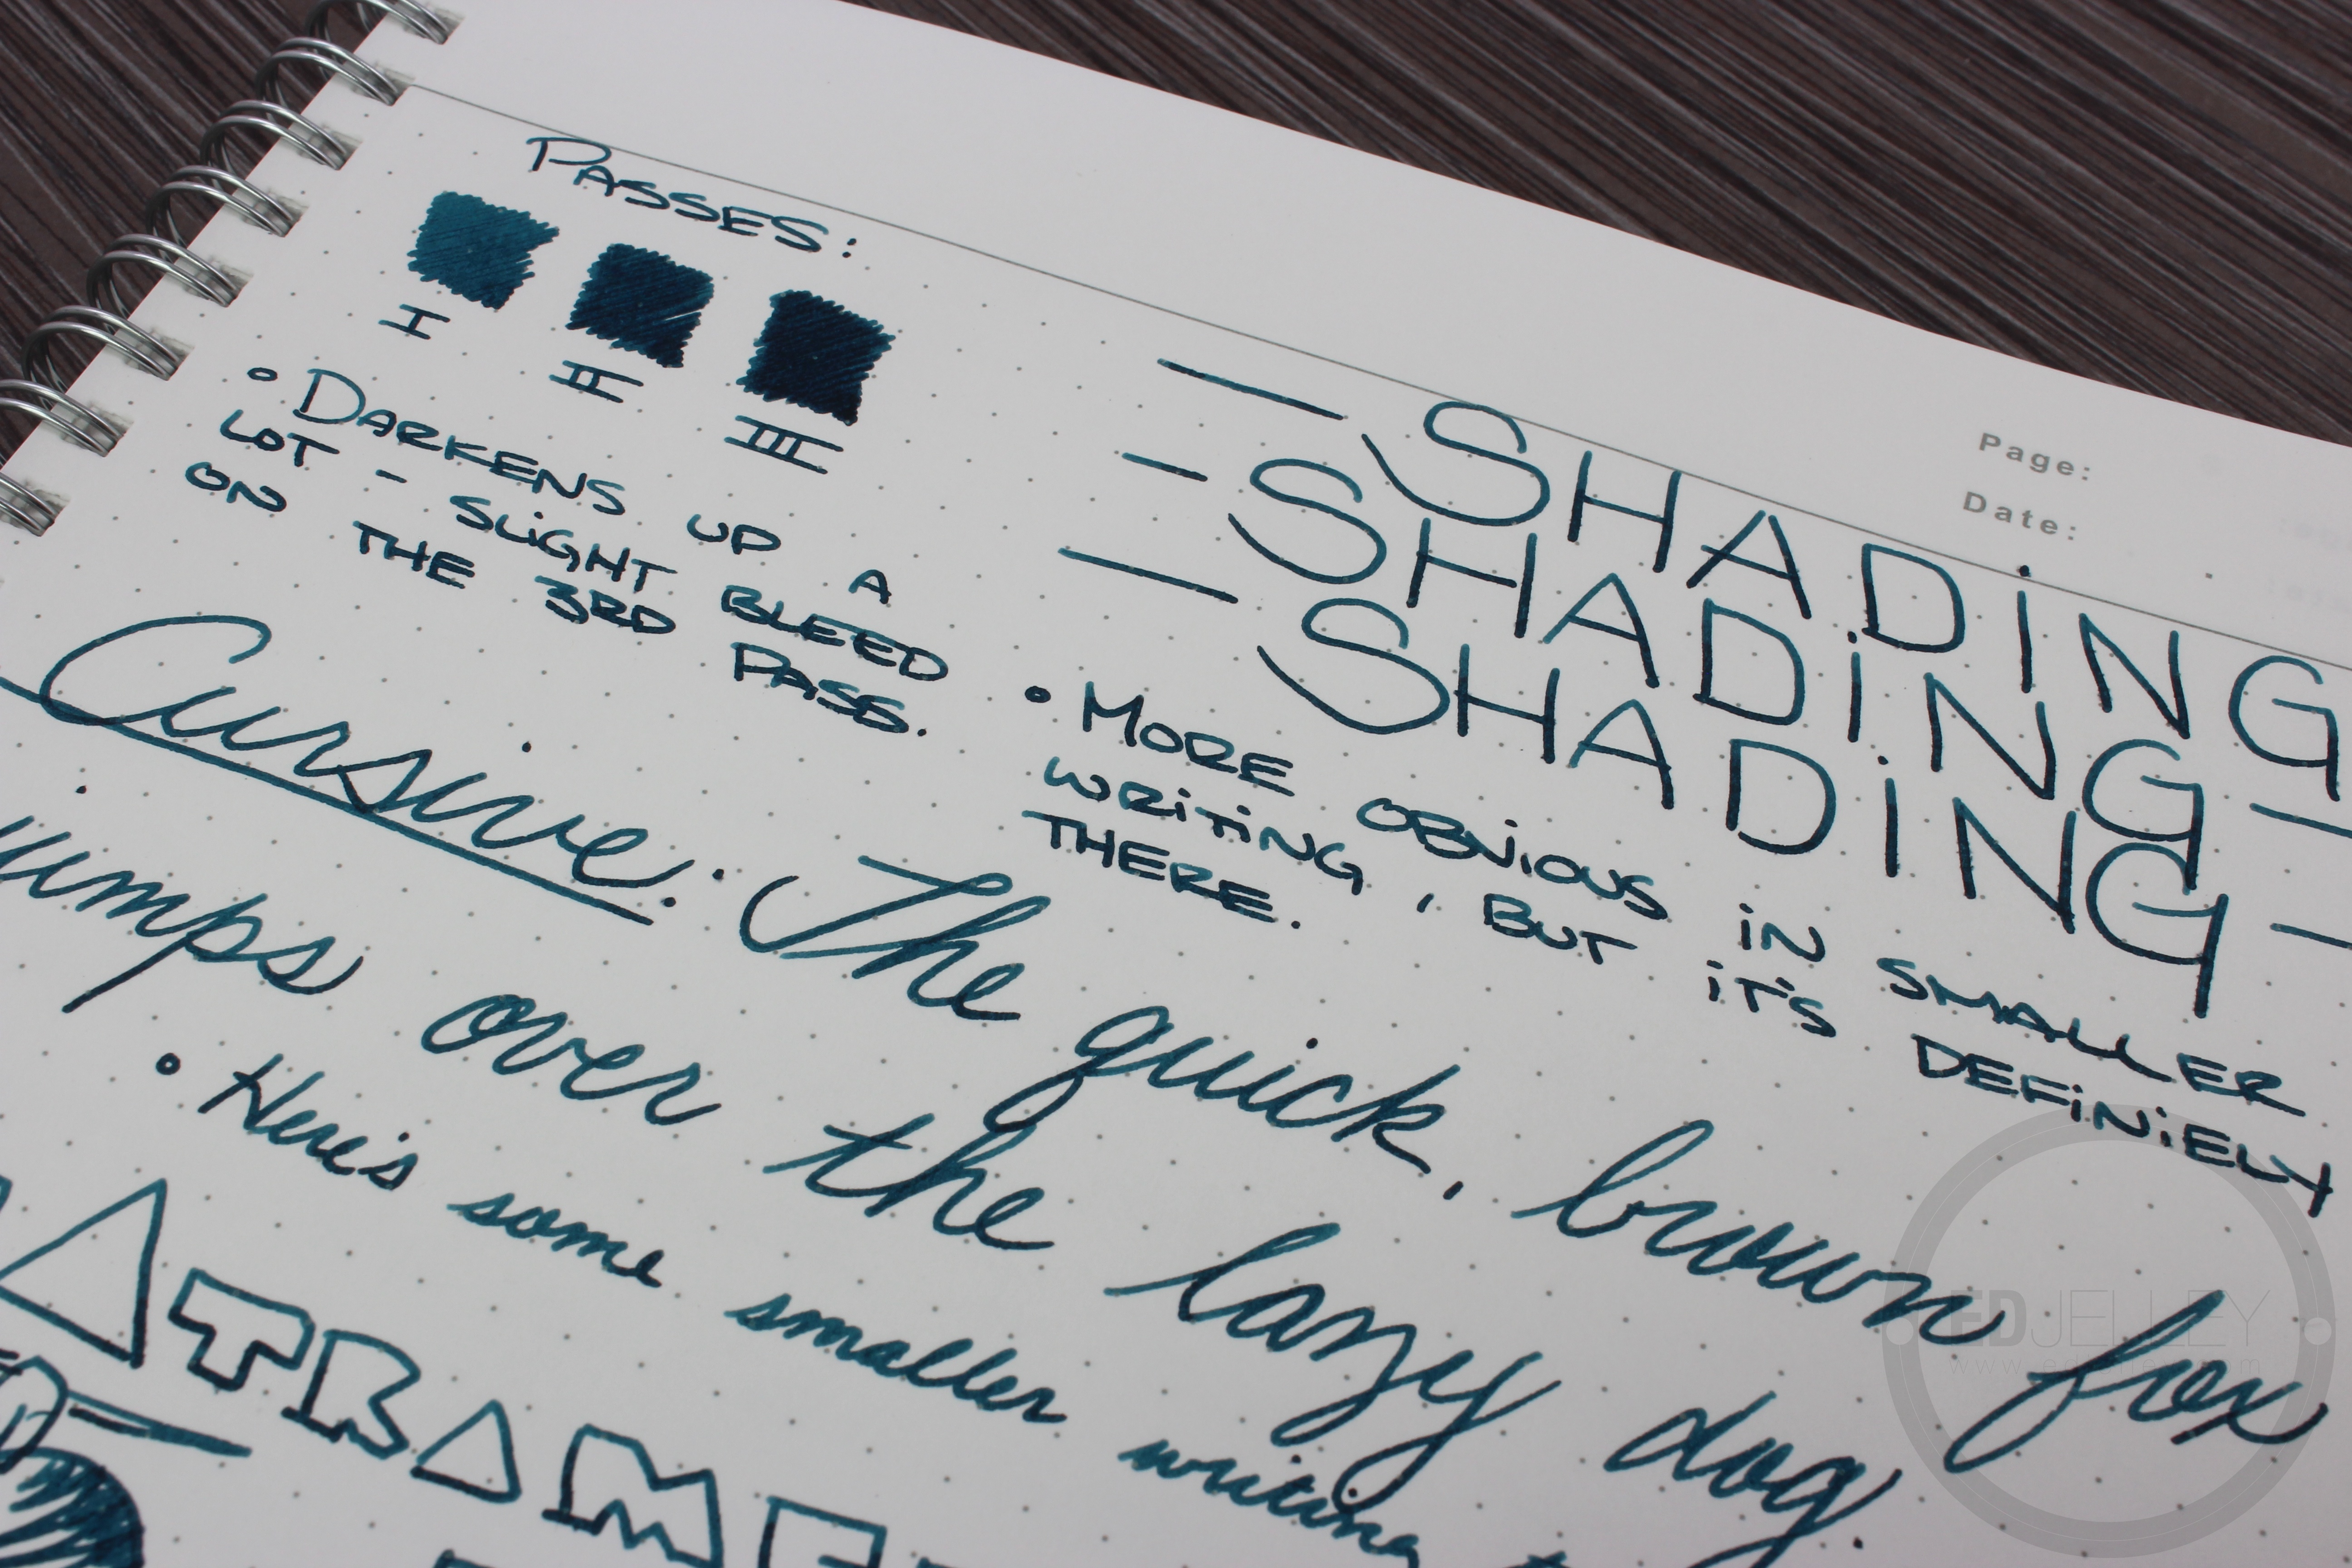 PASSES:
I II III
• DARKENS UP A
LOT - SLiGHT BLEED
ON THE 3RD PASS.
Page:
Date:
— SHADiNG
- SHADiNG —
— SHADiNG —
• MORE OBViOUS iN SMALLER
WRiTiNG, BUT iT'S DEFiNiELY
THERE.
Cursive: The quick, brown fox
jumps over the lazy dog.
• Here's some smaller writing
ATRAME
EDJELLEY